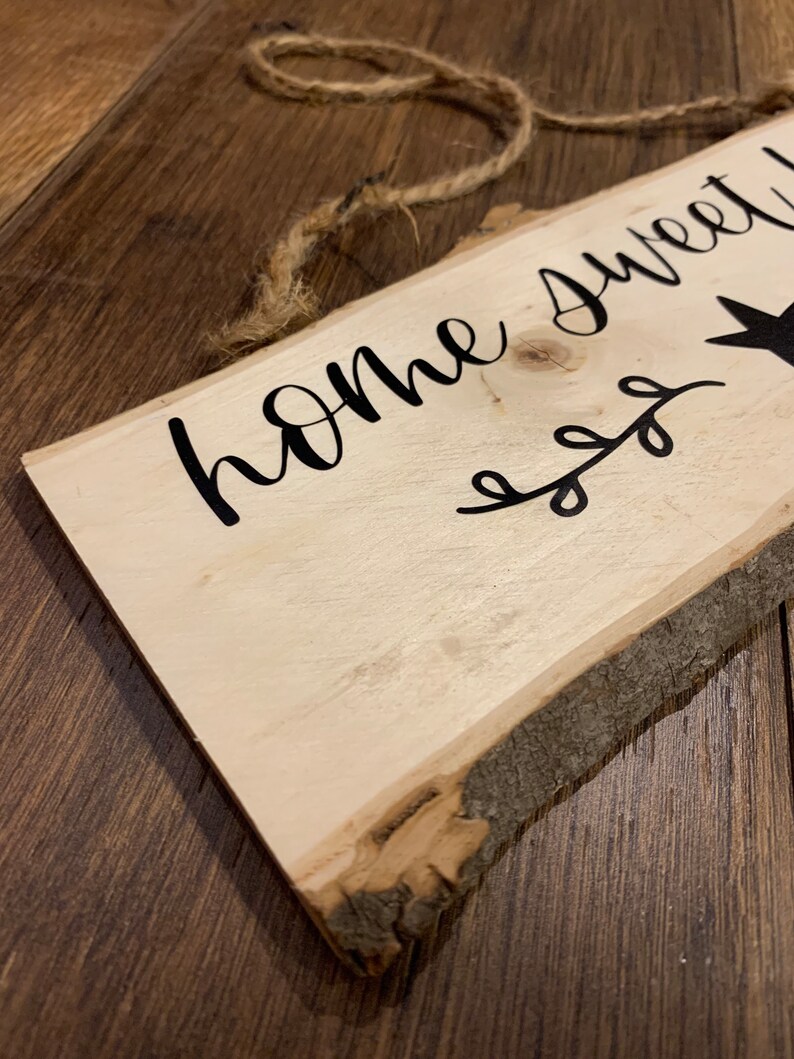 home sweet